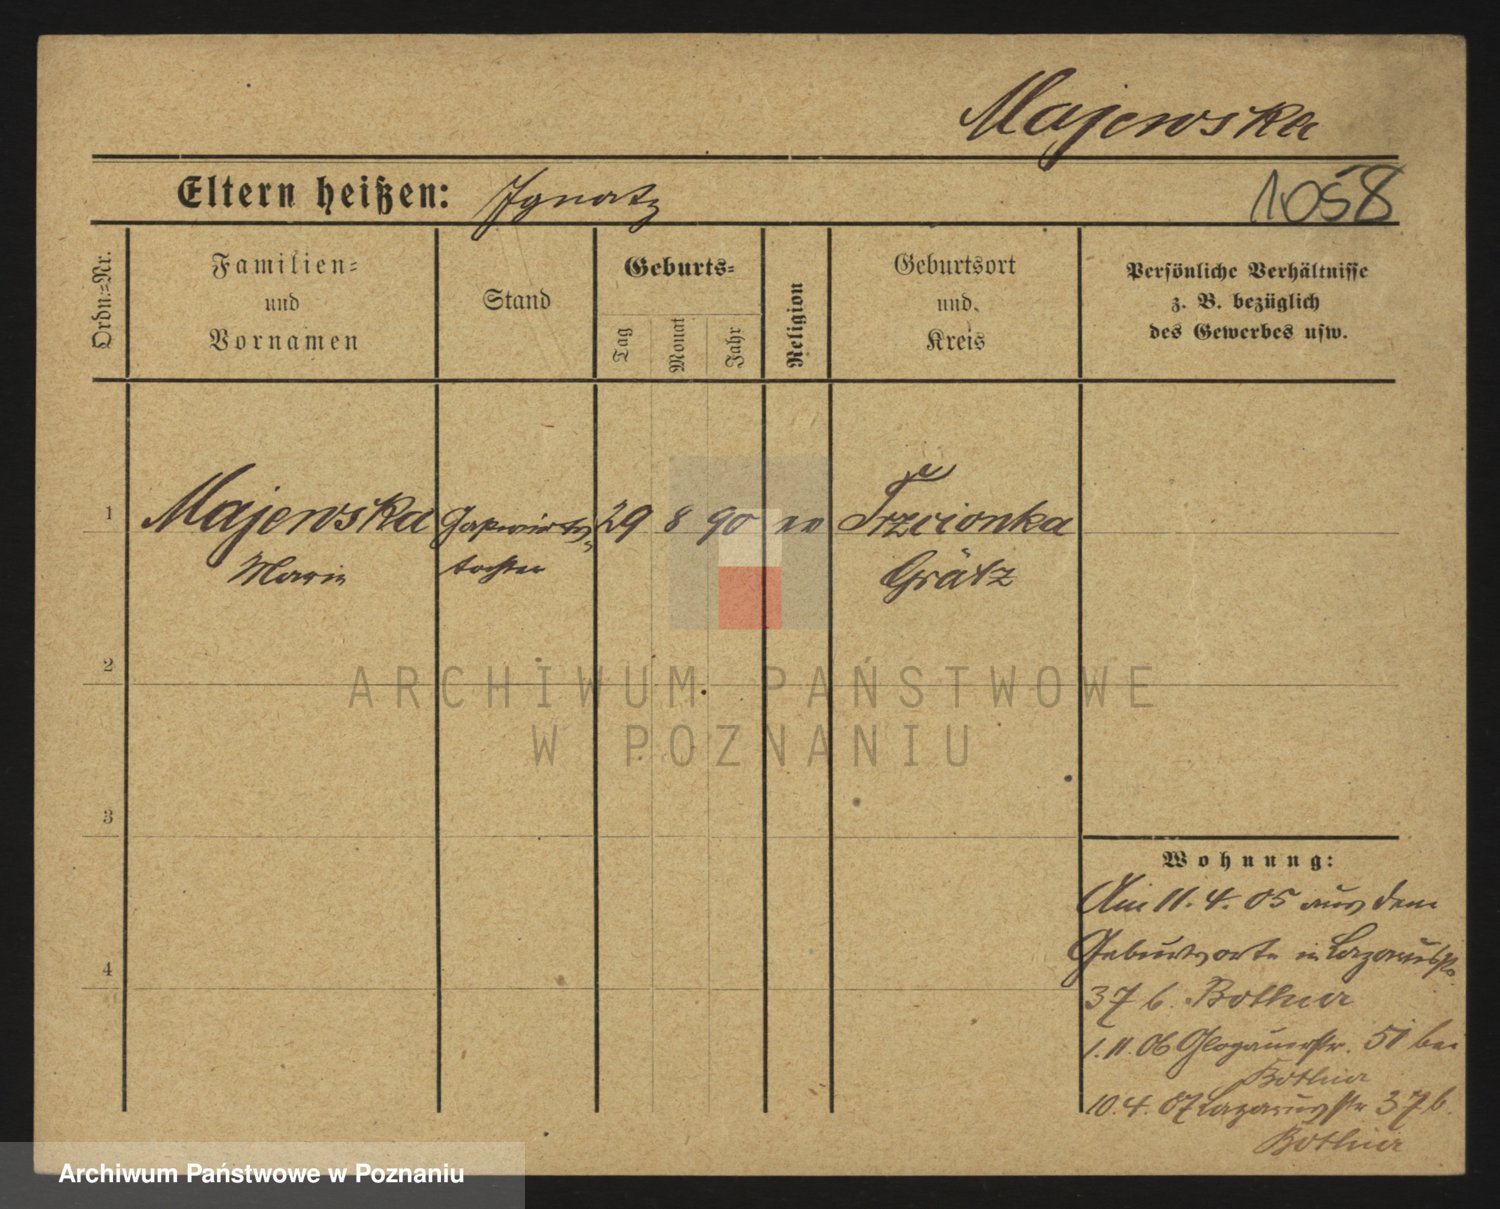 Majewska
Eltern heißen: Ignatz
1058
Ordn.=Nr.
Familien=
und
Vornamen
Stand
Geburts=
Tag
Monat
Jahr
Religion
Geburtsort
und
Kreis
Persönliche Verhältnisse
z. B. bezüglich
des Gewerbes usw.
1 Majewska Gastwirts= 29 8 90 Trzcionka
Marie tochter Grätz
2
ARCHIWUM PAŃSTWOWE
W POZNANIU
3
Wohnung:
Am 11.4.05 aus dem
Geburtsorte in Lazarusstr.
4
37 b. Bothur
1.11.06 Glogauerstr. 51 bei
Bothur
10.4.07 Lazarusstr 37 b.
Bothur
Archiwum Państwowe w Poznaniu